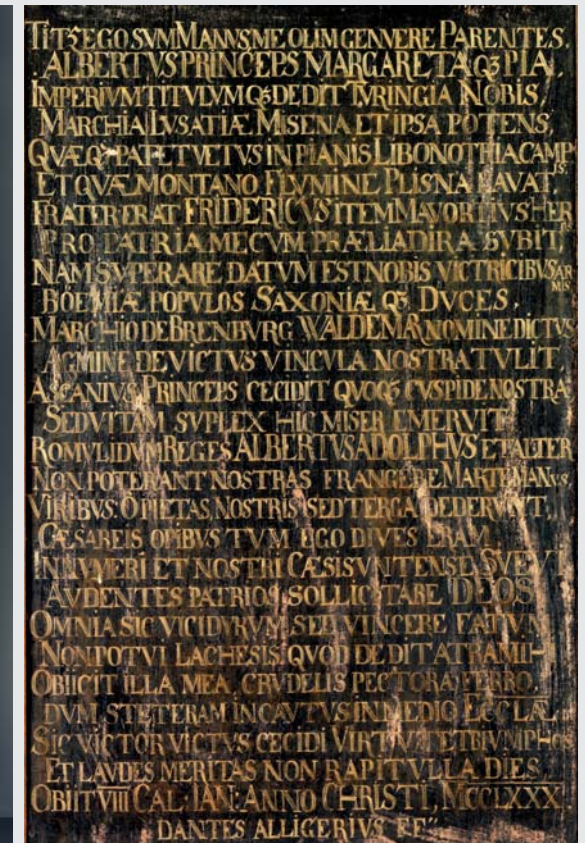 TITZ EGO SVM MANVS ME OLIM GENVERE PARENTES.
ALBERTVS PRINCEPS MARGARETA Q3 PIA,
IMPERIVM TITVLVM Q3 DEDIT TVRINGIA NOBIS,
MARCHIA LVSATIÆ MISENA ET IPSA POTENS,
QVÆ Q3 VETVS IN PLANIS LIBONOTHRIA CAMPIS
ET QVÆ MONTANO FLVMINE PLISNA LAVAT.
FRATER ERAT FRIDERICVS ITEM MAVORTIVS HER
PRO PATRIA MECVM PRÆLIA DIRA SVBIT,
NAM SVPERARE DATVM EST NOBIS VICTRICIBVS ARMIS
BOEMIÆ POPVLOS SAXONIÆ Q3 DVCES,
MARCHIO DE BRENBVRG WALDEMAR NOMINE DICTVS
AGMINE DEVICTVS VINCVLA NOSTRA TVLIT
ASCANIVS PRINCEPS CECIDIT QVOQ3 CVSPIDE NOSTRA
SED VITAM SVPLEX HIC MISER EMERVIT
ROMVLIDVM REGES ALBERTVS ADOLPHVS ET ALTER
NON POTERANT NOSTRAS FRANGERE MARTE MANVS,
VIRIBVS O PIETAS NOSTRIS SED TERGA DEDERVNT,
CÆSAREIS OPIBVS TVM EGO DIVES ERAM
INNVMERI ET NOSTRI CÆSI SVNT ENSE SVEVI
AVDENTES PATRIOS SOLLICITARE DEOS
OMNIA SIC VICI DVRVM SED VINCERE FATVM
NON POTVI LACHESIS QVOD DEDIT ATRA MIH
OBIICIT ILLA MEA CRVDELIS PECTORA FERRO
DVM STETERAM INCAVTVS IN MEDIO ECCLÆ,
SIC VICTOR VICTVS CECIDI VIRTVTE TRIVMPHOS
ET LAVDES MERITAS NON RAPIT VLLA DIES,
OBIIT VIII CAL: IAN: ANNO CHRISTI, MCCLXXX
DANTES ALLIGERIVS F.F."